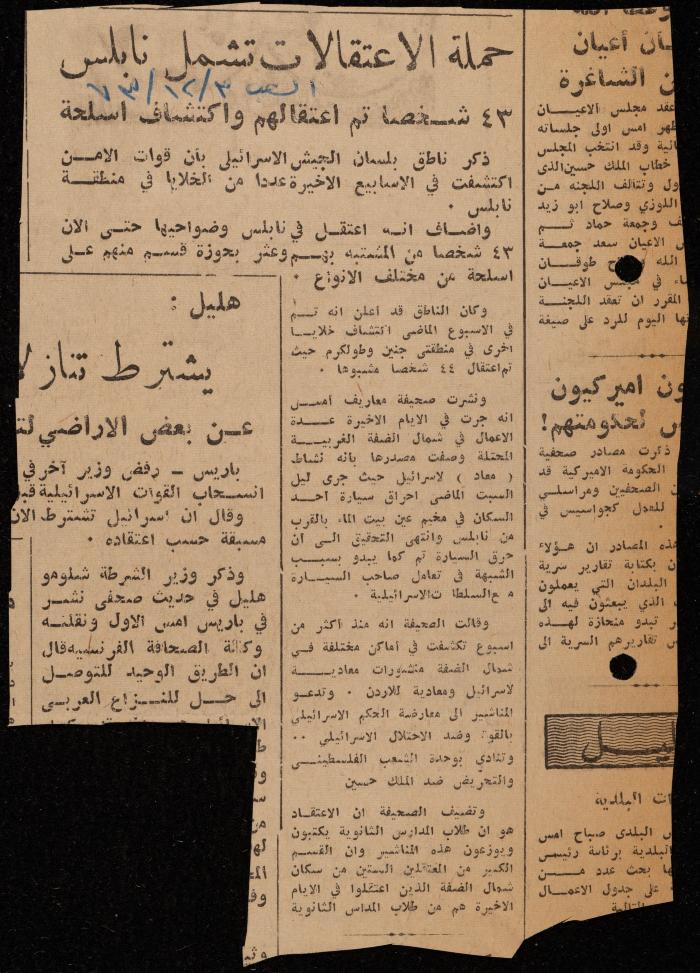 حملة الاعتقالات تشمل نابلس
الشعب ٧٣/١٢/٣
٤٣ شخصا تم اعتقالهم واكتشاف اسلحة
ذكر ناطق بلسان الجيش الاسرائيلي بان قوات الامن
اكتشفت في الاسابيع الاخيرة عددا من الخلايا في منطقة
نابلس .
واضاف انه اعتقل في نابلس وضواحيها حتى الان
٤٣ شخصا من المشتبه بهم وعثر بحوزة قسم منهم على
اسلحة من مختلف الانواع .
وكان الناطق قد أعلن انه تم
في الاسبوع الماضي اكتشاف خلايا
اخرى في منطقتي جنين وطولكرم حيث
تم اعتقال ٤٤ شخصا مشبوها .
ونشرت صحيفة معاريف أمس
انه جرت في الايام الاخيرة عدة
الاعمال في شمال الضفة الغربية
المحتلة وصفت مصدرها بانه نشاط
( معاد ) لاسرائيل حيث جرى ليل
السبت الماضي احراق سيارة احد
السكان في مخيم عين بيت الماء بالقرب
من نابلس وانتهى التحقيق الى ان
حرق السيارة تم كما يبدو بسبب
الشبهة في تعامل صاحب السيارة
مع السلطات الاسرائيلية .
وقالت الصحيفة انه منذ اكثر من
اسبوع تكشفت في أماكن مختلفة في
شمال الضفة منشورات معادية
لاسرائيل ومعادية للاردن . وتدعو
المناشير الى معارضة الحكم الاسرائيلي
بالقوة وضد الاحتلال الاسرائيلي ..
وتنادي بوحدة الشعب الفلسطيني
والتحريض ضد الملك حسين
وتضيف الصحيفة ان الاعتقاد
هو ان طلاب المدارس الثانوية يكتبون
ويوزعون هذه المناشير وان القسم
الكبير من المعتقلين الستين من سكان
شمال الضفة الذين اعتقلوا في الايام
الاخيرة هم من طلاب المداس الثانوية
هليل :
يشترط تناز
عن بعض الاراضي
باريس ــ رفض وزير آخر في
انسحاب القوات الاسرائيلية
وقال ان اسرائيل تشترط الان
مسبقة حسب اعتقاده .
وذكر وزير الشرطة شلومو
هليل في حديث صحفي نشر
في باريس امس الاول ونقلته
وكالة الصحافة الفرنسية قال
ان الطريق الوحيد للتوصل
الى حل للنزاع العربي
أعيان
الشاغرة
عقد مجلس الاعيان
ظهر امس اولى جلساته
وقد انتخب المجلس
خطاب الملك حسين الذي
وتتألف اللجنه من
اللوزي وصلاح ابو زيد
وجمعة حماد ثم
الاعيان سعد جمعة
الله طوقان
في مجلس الاعيان
المقرر ان تعقد اللجنة
اليوم للرد على صيغة
اميركيون
لحكومتهم!
ذكرت مصادر صحفية
الحكومة الاميركية قد
الصحفيين ومراسلي
للعمل كجواسيس في
هذه المصادر ان هؤلاء
بكتابة تقارير سرية
البلدان التي يعملون
الذي يبعثون فيه الى
تبدو منحازة لهذه
تقاريرهم السرية الى
البلدية
البلدي صباح امس
البلدية برئاسة رئيس
بحث عدد من
على جدول الاعمال
التالية